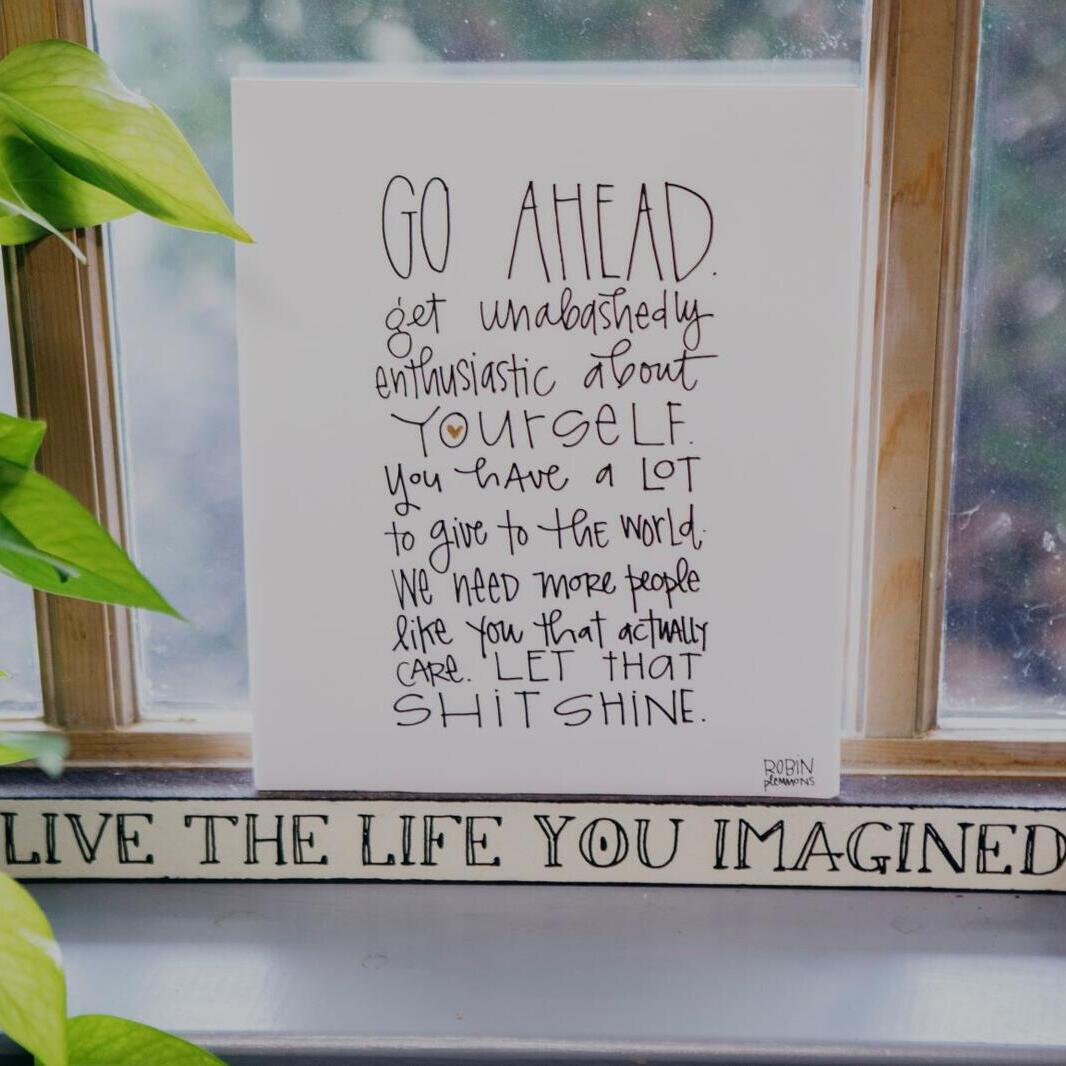 GO AHEAD.
get unabashedly
enthusiastic about
YOURSELF.
you have a LOT
to give to the world.
We need more people
like you that actually
CARE. LET that
SHIT SHINE.
ROBIN
plemmons
LIVE THE LIFE YOU IMAGINED